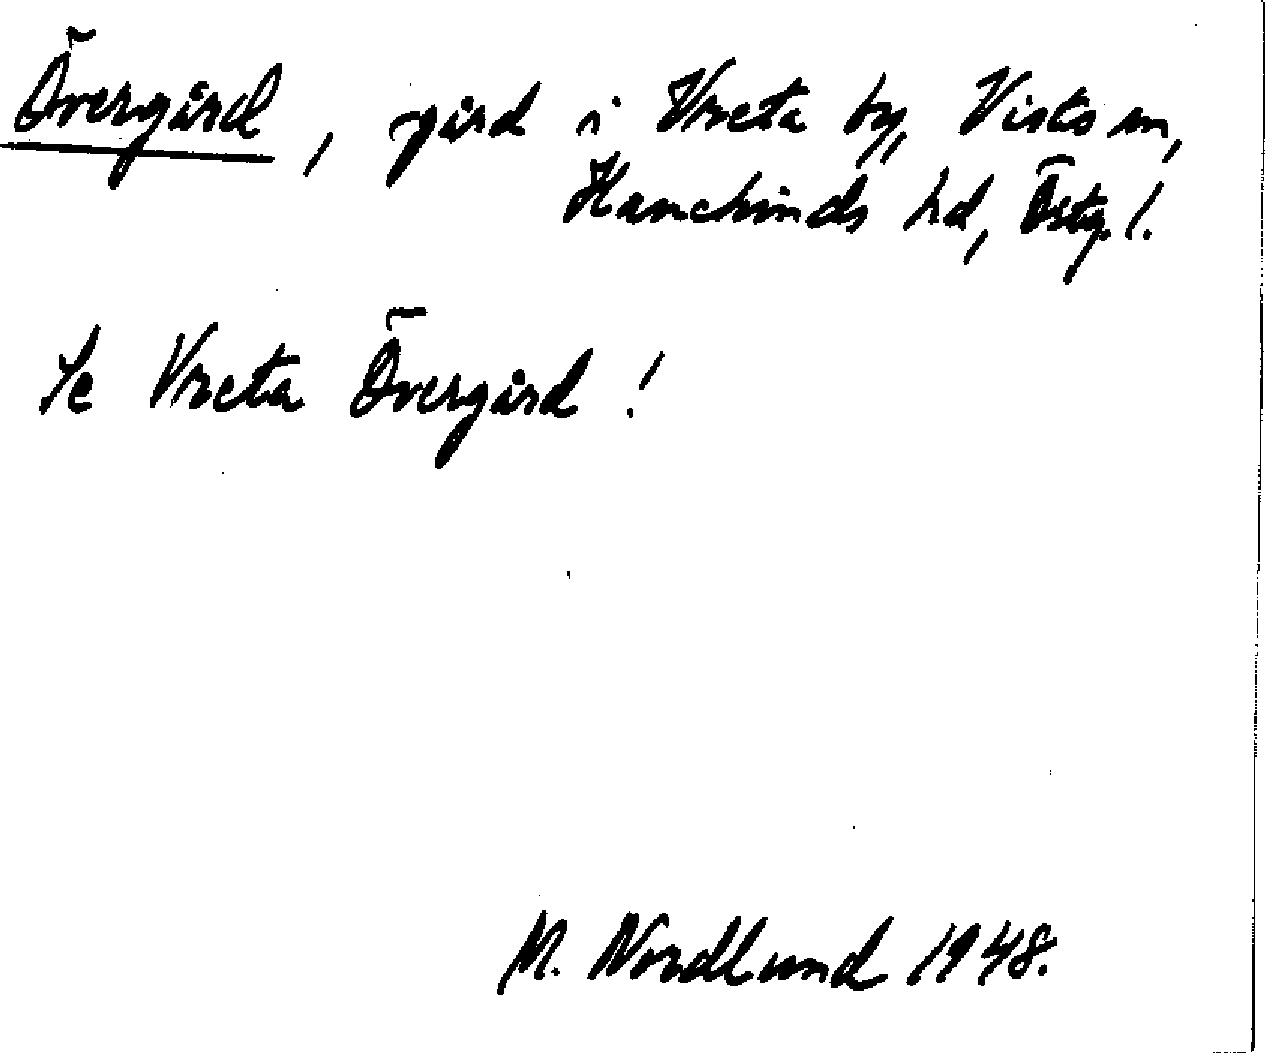 Övergård, gård i Vreta by, Vists sn,
Hanekinds hd, Östg. l.
Se Vreta Övergård!
M. Nordlund 1948.